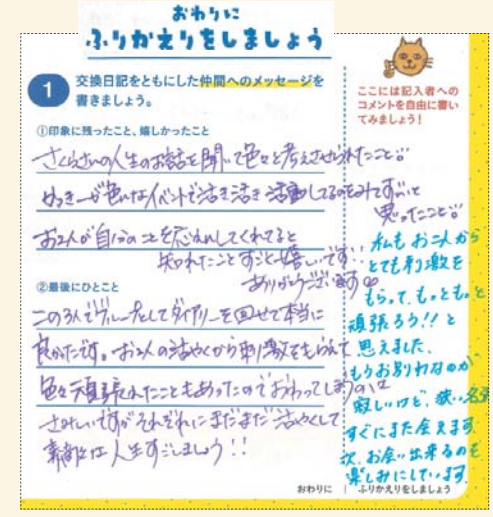 おわりに
ふりかえりをしましょう
1
交換日記をともにした仲間へのメッセージを
書きましょう。
①印象に残ったこと、嬉しかったこと
さくらさんの人生のお話を聞いて色々と考えさせられたこと!!
ゆっきーが色んなイベントで活き活き活動してるのをみてすごいと
思ったこと!!
お2人が自分のことを応えんしてくれてると
知れたことすごく嬉しいです!!
ありがとうございます♡
②最後にひとこと
この3人でグループとしてダイアリーを回せて本当に
良かったです。お2人の活やくから刺激をもらえて
色々頑張れたこともあったのでおわってしまうのは
さみしいですがそれぞれにまだまだ活やくして
素敵な人生すごしましょう!!
ここには記入者への
コメントを自由に書い
てみましょう!
私もお二人から
とても刺激を
もらって、もっともっと
頑張ろう!!と
思えました。
もうお別れなのが
寂しいけど、狭い名張
すぐにまた会えます
次、お会い出来るのを
楽しみにしています。
おわりに | ふりかえりをしましょう